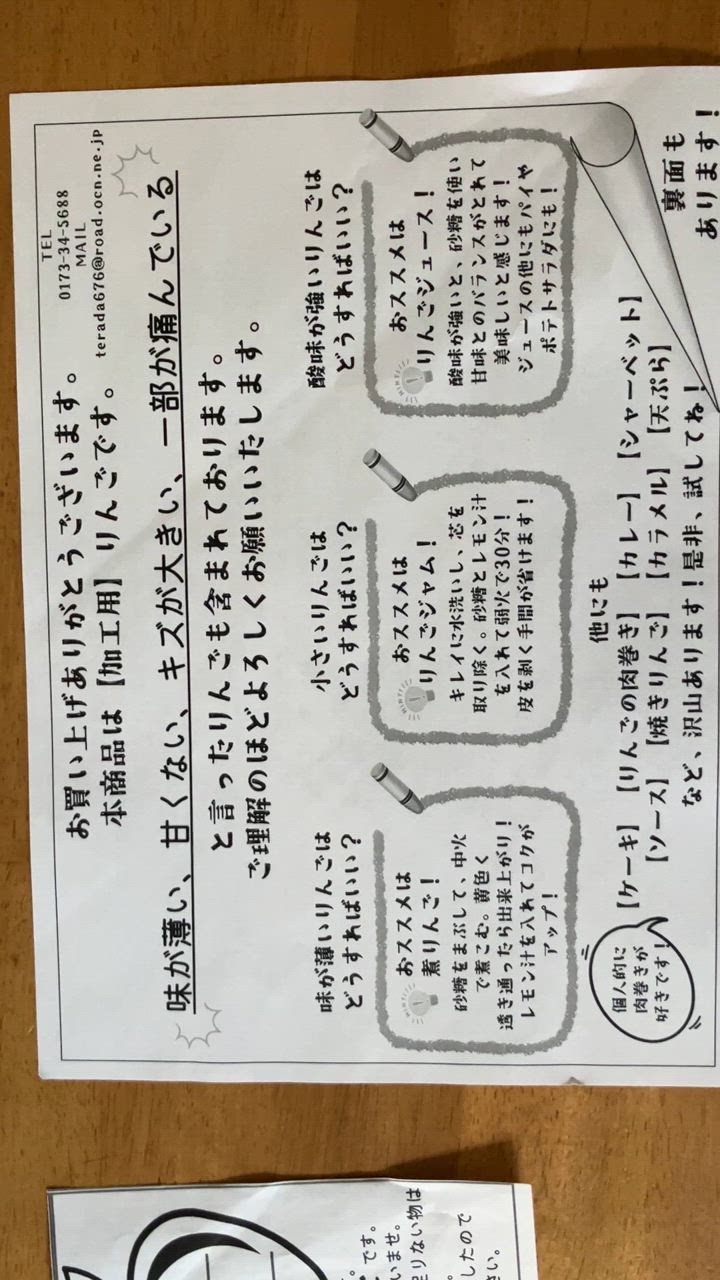 お買い上げありがとうございます。
本商品は【加工用】りんごです。
TEL
0173-34-5688
MAIL
terada676@road.ocn.ne.jp
味が薄い、甘くない、キズが大きい、一部が痛んでいる
と言ったりんごも含まれております。
ご理解のほどよろしくお願いいたします。
味が薄いりんごは
どうすればいい?
おススメは
煮りんご!
砂糖をまぶして、中火
で煮こむ。黄色く
透き通ったら出来上がり!
レモン汁を入れてコクが
アップ!
小さいりんごは
どうすればいい?
おススメは
りんごジャム!
キレイに水洗いし、芯を
取り除く。砂糖とレモン汁
を入れて弱火で30分!
皮を剥く手間が省けます!
酸味が強いりんごは
どうすればいい?
おススメは
りんごジュース!
酸味が強いと、砂糖を使い
甘味とのバランスがとれて
美味しいと感じます!
ジュースの他にもパイや
ポテトサラダにも!
他にも
【ケーキ】【りんごの肉巻き】【カレー】【シャーベット】
【ソース】【焼きりんご】【カラメル】【天ぷら】
など、沢山あります!是非、試してね!
個人的に
肉巻きが
好きです!
裏面も
あります!
。
です。
いませ。
足りない物は
したので
さい。